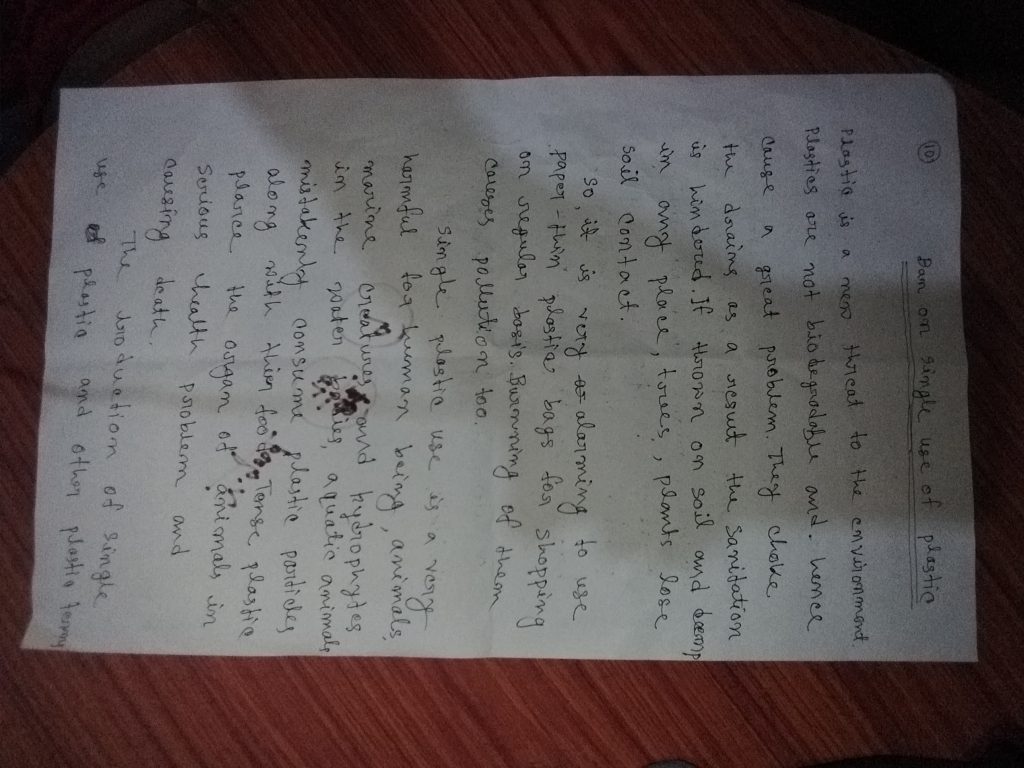 101
Ban on single use of plastic
Plastic is a new threat to the environment
Plastics are not biodegradable and. hence
cause a great problem. They choke
the drains as a result the sanitation
is hindered. If thrown on soil and
in any place, trees, plants lose
soil contact.
So, it is very alarming to use
paper-thin plastic bags for shopping
on regular basis. Burnning of them
causes pollution too.
Single plastic use is a very
harmful for human being, animals,
marine creatures and hydrophytes
in the water bodies, aquatic animals
mistakenly consume plastic particles
along with thier food. plastic
pierce the organ of animals in
serious health problem and
causing death.
The production of single
use of plastic and other plastic